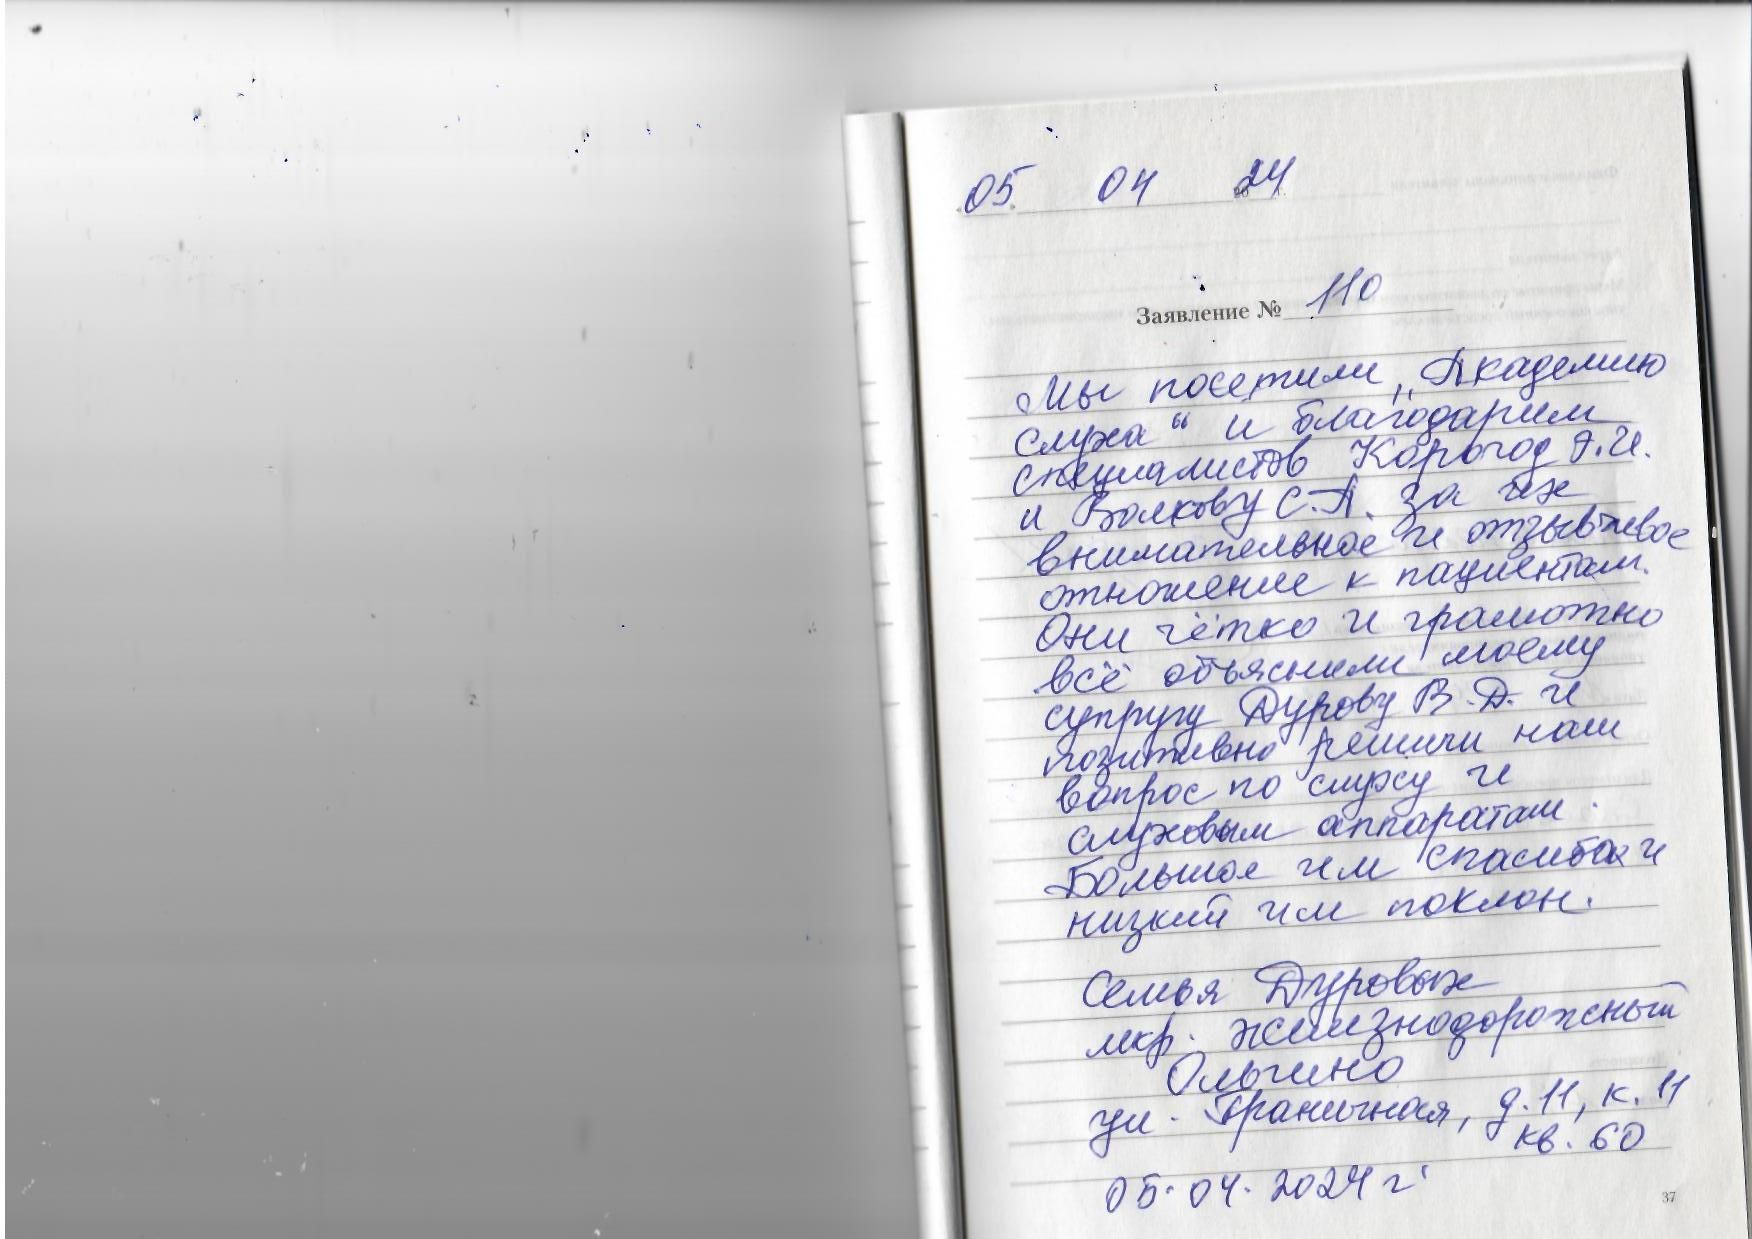 05 04 2024 г.
Заявление № 110
Мы посетили „Академию
слуха“ и благодарим
специалистов Корогод Я.И.
и Волкову С.А. за их
внимательное и отзывчивое
отношение к пациентам.
Они чётко и грамотно
всё объяснили моему
супругу Дурову В.Д. и
позитивно решили наш
вопрос по слуху и
слуховым аппаратам.
Большое им спасибо и
низкий им поклон.
Семья Дуровых
мкр. Железнодорожный
Ольгино
ул. Граничная, д. 11, к. 11
кв. 60
05.04.2024 г.
37